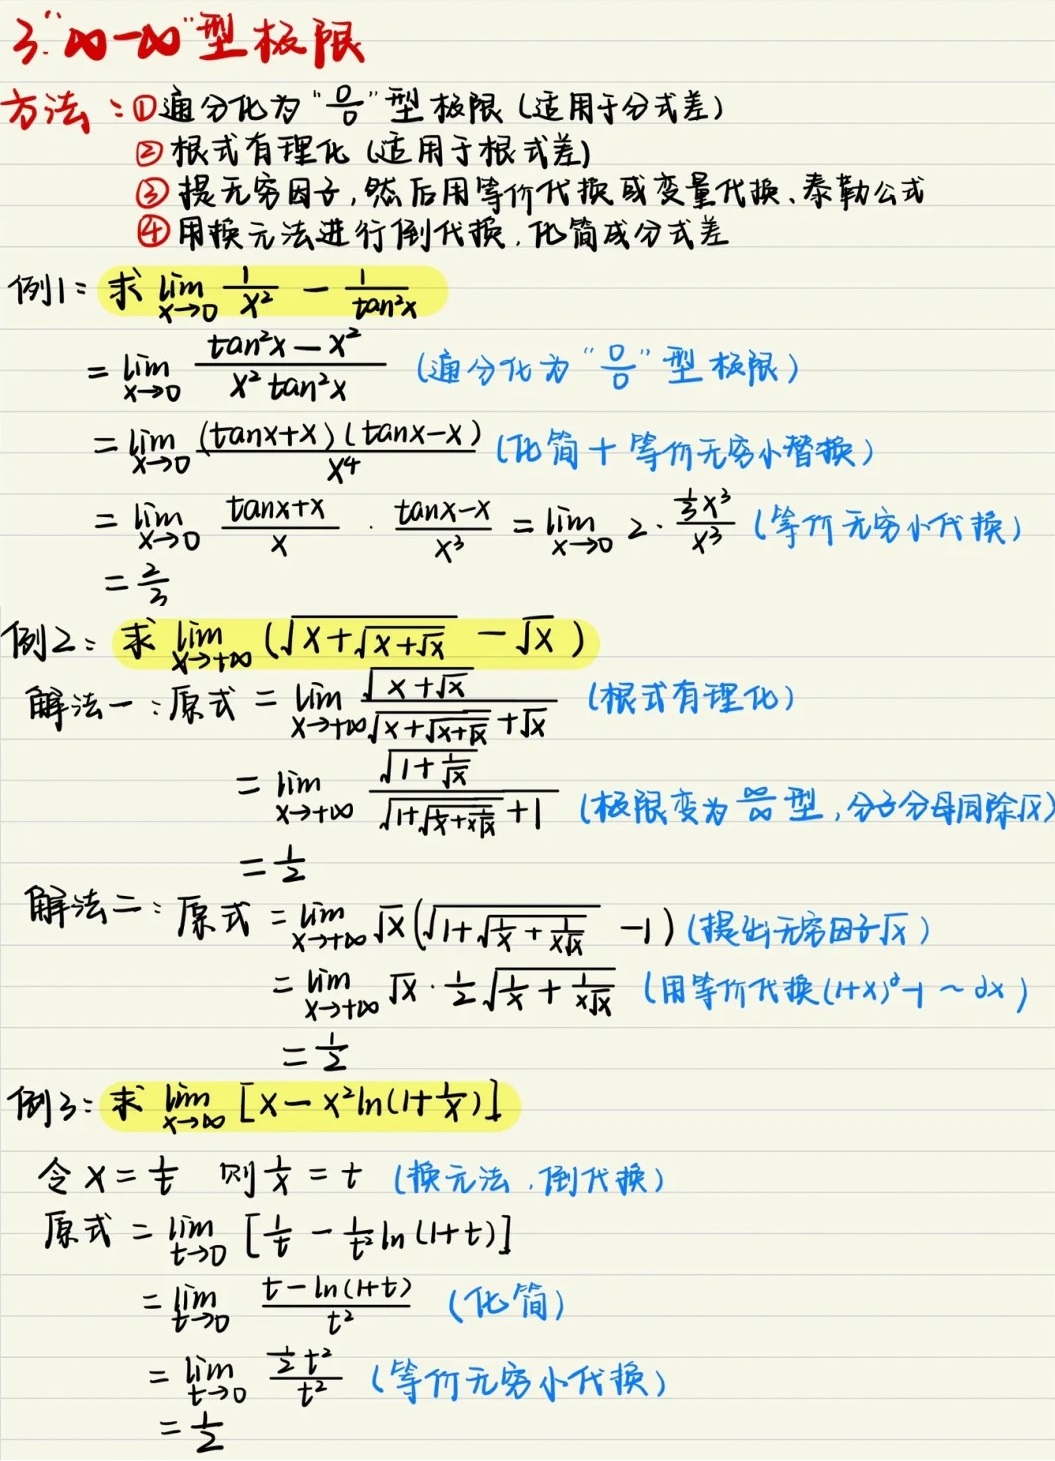 3."∞-∞"型极限
方法：①通分化为"0/0"型极限（适用于分式差）
②根式有理化（适用于根式差）
③提无穷因子,然后用等价代换或变量代换、泰勒公式
④用换元法进行倒代换,化简成分式差
例1：求 lim x→0 1/x² - 1/tan²x
= lim x→0 (tan²x-x²)/(x²tan²x)（通分化为"0/0"型极限）
= lim x→0 (tanx+x)(tanx-x)/x⁴（化简+等价无穷小替换）
= lim x→0 (tanx+x)/x · (tanx-x)/x³ = lim x→0 2·(1/3 x³)/x³（等价无穷小代换）
= 2/3
例2：求 lim x→+∞ (√(x+√(x+√x)) - √x)
解法一：原式 = lim x→+∞ √(x+√x)/(√(x+√(x+√x))+√x)（根式有理化）
= lim x→+∞ √(1+1/√x)/(√(1+√(1/x+1/(x√x)))+1)（极限变为∞/∞型,分子分母同除√x）
= 1/2
解法二：原式 = lim x→+∞ √x(√(1+√(1/x+1/(x√x))) -1)（提出无穷因子√x）
= lim x→+∞ √x·1/2 √(1/x+1/(x√x))（用等价代换(1+x)^∂-1~∂x）
= 1/2
例3：求 lim x→∞ [x-x²ln(1+1/x)]
令 x=1/t 则 1/x=t（换元法,倒代换）
原式 = lim t→0 [1/t - 1/t² ln(1+t)]
= lim t→0 (t-ln(1+t))/t²（化简）
= lim t→0 (1/2 t²)/t²（等价无穷小代换）
= 1/2